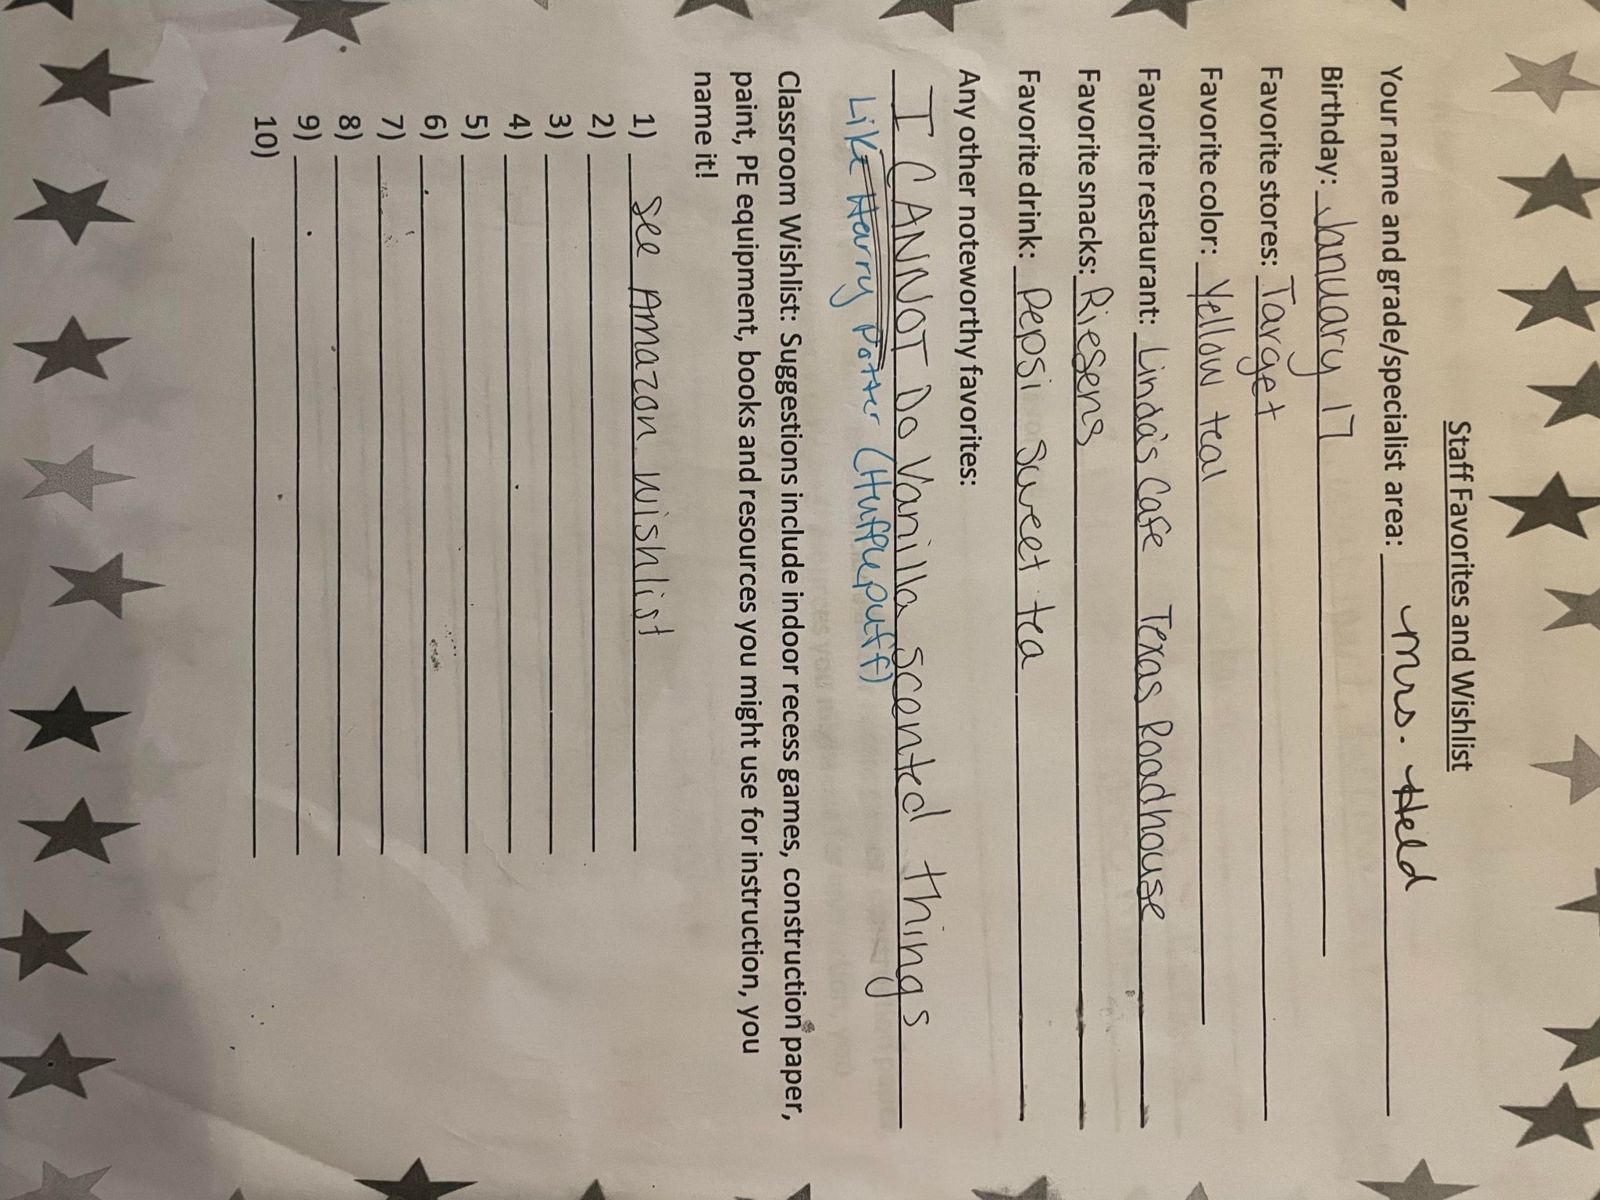 Staff Favorites and Wishlist
Your name and grade/specialist area: Mrs. Held
Birthday: January 17
Favorite stores: Target
Favorite color: Yellow teal
Favorite restaurant: Linda's Cafe Texas Roadhouse
Favorite snacks: Riesens
Favorite drink: Pepsi sweet tea
Any other noteworthy favorites:
I CANNOT Do Vanilla scented things
Like Harry Potter (Hufflepuff)
Classroom Wishlist: Suggestions include indoor recess games, construction paper,
paint, PE equipment, books and resources you might use for instruction, you
name it!
1) See Amazon wishlist
2)
3)
4)
5)
6)
7)
8)
9)
10)